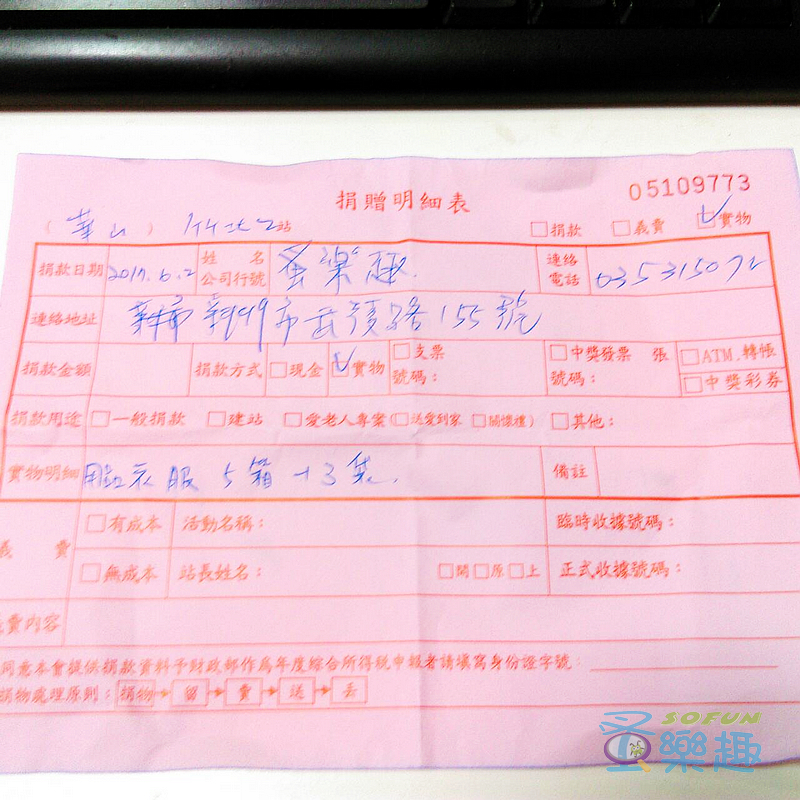 捐贈明細表
05109773
(華山) 竹北二站 □捐款 □義賣 ☑實物
捐款日期 2017.6.2 姓名 公司行號 蚤樂趣. 連絡電話 035315072
連絡地址 新竹市武陵路155號
捐款金額 捐款方式 □現金 ☑實物 □支票 號碼： □中獎發票 張 號碼： □ATM.轉帳 □中獎彩券
捐款用途 □一般捐款 □建站 □愛老人專案(□送愛到家 □關懷禮) □其他：
實物明細 衣服 5箱+3袋. 備註
義賣 □有成本 活動名稱： 臨時收據號碼：
□無成本 站長姓名： □開□原□上 正式收據號碼：
賣內容
同意本會提供捐款資料予財政部作為年度綜合所得稅申報者請填寫身份證字號：
捐物處理原則：捐物→留→賣→送→丟
SOFUN
蚤樂趣